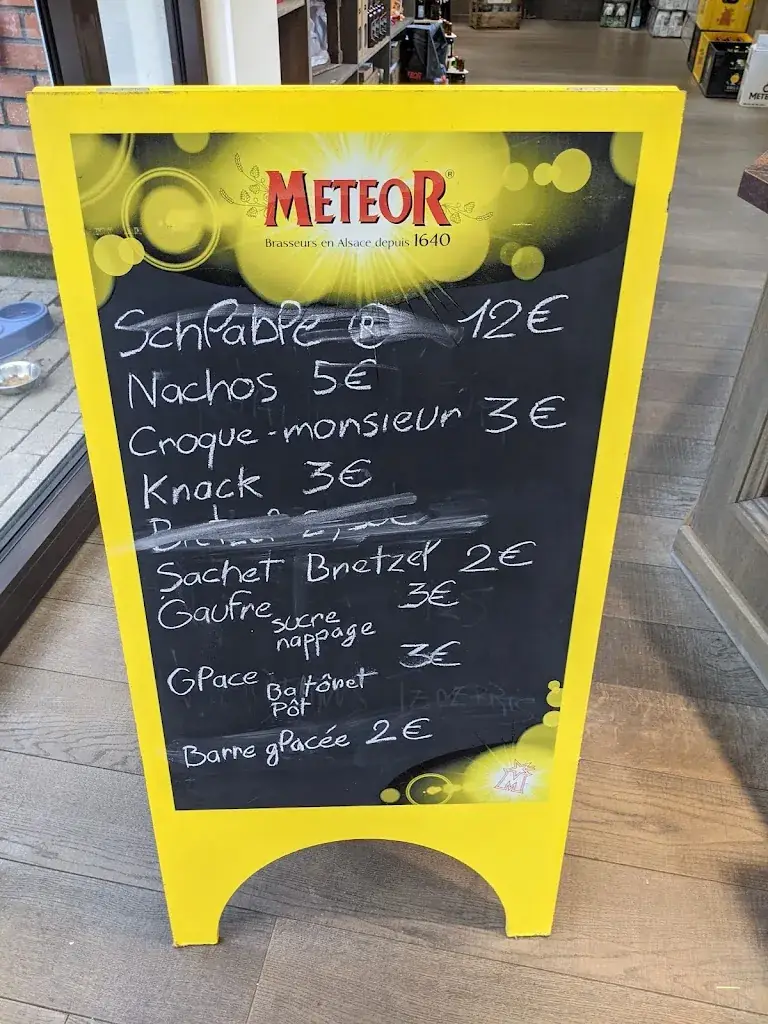 METEOR®
Brasseurs en Alsace depuis 1640
Schlabbe ® 12€
Nachos 5€
Croque-monsieur 3€
Knack 3€
Sachet Bretzel 2€
Gaufre sucre 3€
nappage
Glace Batônet 3€
Pôt
Barre glacée 2€
M
METEOR
METE